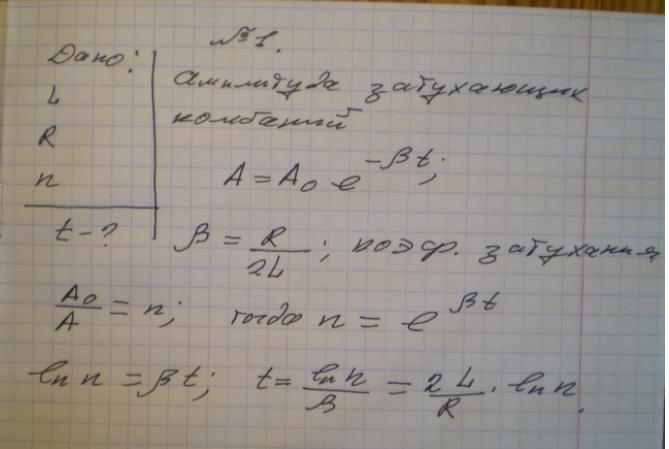 №1.
Дано:
L
R
n
t - ?
амплитуда затухающих
колбаний
A = A₀ e^{-βt};
β = R/2L; коэф. затухания
A₀/A = n; тогда n = e^{βt}
ln n = βt; t = ln n/β = 2L/R · ln n.